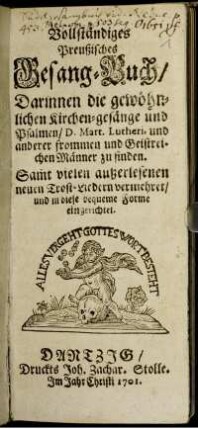 Vollständiges
Preußisches
Gesang-Buch/
Darinnen die gewöhn-
lichen Kirchen-gesänge und
Psalmen/ D. Mart. Lutheri- und
anderer frommen und Geistrei-
chen Männer zu finden.
Samt vielen außerlesenen
neuen Trost-Liedern vermehret/
und in diese bequeme Forme
eingerichtet.
ALLES VERGEHT GOTTES WORT BESTEHT
DANTZIG/
Druckts Joh. Zachar. Stolle.
Im Jahr Christi 1701.